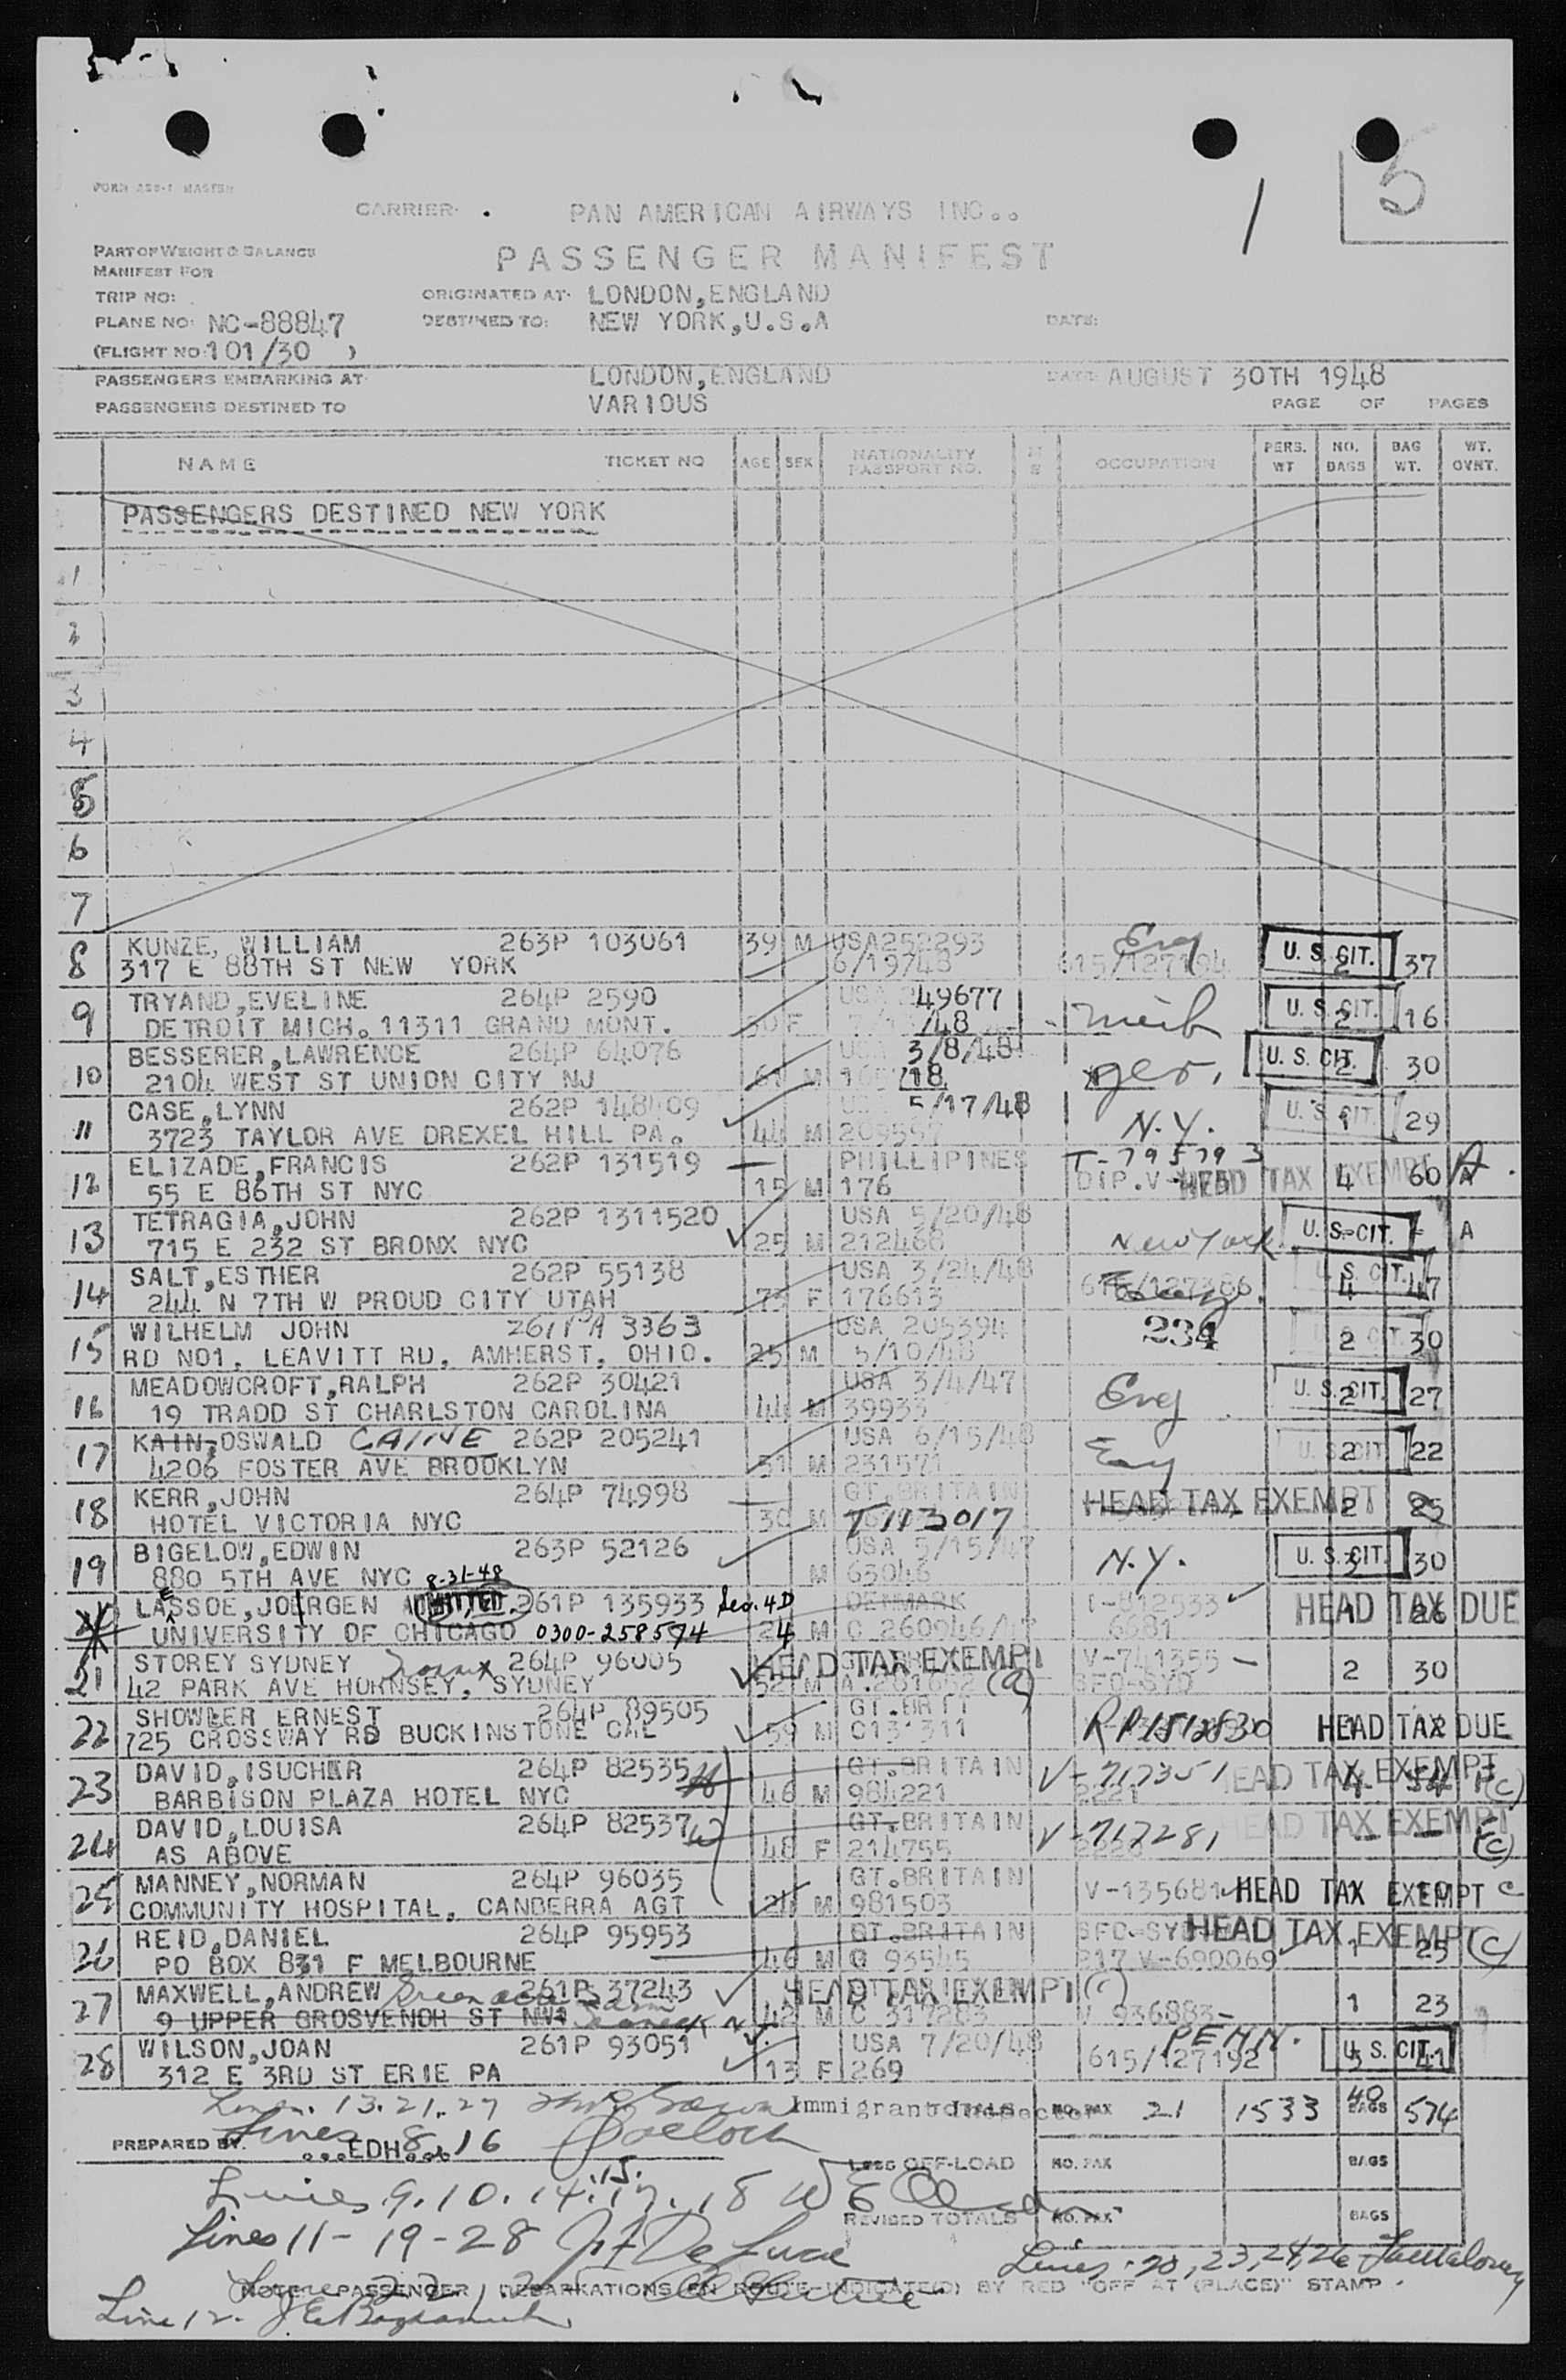 FORM MASTER
CARRIER . PAN AMERICAN AIRWAYS INC..
1 5
PART OF WEIGHT & BALANCE PASSENGER MANIFEST
MANIFEST FOR
TRIP NO: ORIGINATED AT LONDON,ENGLAND
PLANE NO: NC-88847 DESTINED TO: NEW YORK,U.S.A DATE:
(FLIGHT NO:101/30 )
PASSENGERS EMBARKING AT LONDON,ENGLAND DATE AUGUST 30TH 1948
PASSENGERS DESTINED TO VARIOUS PAGE OF PAGES
NAME TICKET NO AGE SEX NATIONALITY PASSPORT NO. OCCUPATION PERS. WT NO. BAGS BAG WT. WT. OVNT.
PASSENGERS DESTINED NEW YORK
1
2
3
4
5
6
7
8 KUNZE, WILLIAM 263P 103061 39 M USA252293 Eng U. S. CIT. 2 37
317 E 88TH ST NEW YORK 6/19748 615/127194
9 TRYAND,EVELINE 264P 2590 USA 49677 U. S. CIT. 2 16
DETROIT MICH. 11311 GRAND MONT. 30 F /48
10 BESSERER,LAWRENCE 264P 64076 3/8/48 ger. U. S. CIT. 30
2104 WEST ST UNION CITY NJ 61 M 718
11 CASE,LYNN 262P 148409 5/17/48 N.Y. U. S. CIT. 1 29
3723 TAYLOR AVE DREXEL HILL PA. 44 M 209557
12 ELIZADE,FRANCIS 262P 131519 PHILLIPINES T-795793 HEAD TAX EXEMPT 4 60 A
55 E 86TH ST NYC 15 M 176 DIP.V
13 TETRAGIA,JOHN 262P 1311520 USA 5/20/48 New York U. S. CIT. A
715 E 232 ST BRONX NYC 25 M 212468
14 SALT,ESTHER 262P 55138 USA 3/24/48 U. S. CIT. 4 47
244 N 7TH W PROUD CITY UTAH 73 F 176613 615/127386
15 WILHELM JOHN 261PA 3363 USA 205394 234 U. S. CIT. 2 30
RD NO1, LEAVITT RD, AMHERST, OHIO. 25 M 5/10/48
16 MEADOWCROFT,RALPH 262P 30421 USA 3/4/47 Eng U. S. CIT. 2 27
19 TRADD ST CHARLSTON CAROLINA 44 M 39933
17 KAIN,OSWALD CAINE 262P 205241 USA 6/15/48 Eng U. S. CIT 2 22
4206 FOSTER AVE BROOKLYN 51 M 231571
18 KERR,JOHN 264P 74998 GT.BRITAIN HEAD TAX EXEMPT 2 25
HOTEL VICTORIA NYC 30 M T1193017
19 BIGELOW,EDWIN 263P 52126 USA 5/15/47 N.Y. U. S. CIT. 3 30
880 5TH AVE NYC 8-31-48 M 63046
LASSOE,JOERGEN ADMITTED 261P 135933 Sec. 4D DENMARK HEAD TAX DUE 1 26
UNIVERSITY OF CHICAGO 0300-258594 24 M C 260946/47 6681
21 STOREY SYDNEY 264P 96005 HEAD TAX EXEMPT V-741355 2 30
42 PARK AVE HORNSEY, SYDNEY 52 M A.281652 (a) SFO-SYD
22 SHOWLER ERNEST 264P 89505 GT.BRIT RP1512830 HEAD TAX DUE
725 CROSSWAY RD BUCKINSTONE CAL 59 M C131311
23 DAVID,ISUCHER 264P 82535 GT.BRITAIN V-717351 HEAD TAX EXEMPT (C)
BARBISON PLAZA HOTEL NYC 46 M 984221 2221
24 DAVID,LOUISA 264P 82537 GT.BRITAIN V-717281 HEAD TAX EXEMPT (C)
AS ABOVE 48 F 214755
25 MANNEY,NORMAN 264P 96035 GT.BRITAIN V-135681 HEAD TAX EXEMPT C
COMMUNITY HOSPITAL, CANBERRA AGT M 981503
26 REID,DANIEL 264P 95953 GT.BRITAIN SFO-SYD HEAD TAX EXEMPT (C)
PO BOX 831 F MELBOURNE 46 M Q 93545 217 V-690069 1 25
27 MAXWELL,ANDREW 261P 37243 HEAD TAX EXEMPT (c)
9 UPPER GROSVENOR ST NW1 42 M C 317203 V 936883 1 23
28 WILSON,JOAN 261P 93051 USA 7/20/48 PENN. U. S. CIT. 3 41
312 E 3RD ST ERIE PA 13 F 269 615/127192
Lines. 13.21.27 Immigrant Inspector TOTALS NO. PAX 21 1533 40 BAGS 574
Lines 8 16
PREPARED BY ...EDH...
Less OFF-LOAD NO. PAX BAGS
Lines 9.10.14.15.17.18
REVISED TOTALS NO. PAX BAGS
Lines 11-19-28
Lines 20,23,24,26
NOTE: PASSENGER DEBARKATIONS EN ROUTE INDICATE(D) BY RED "OFF AT (PLACE)" STAMP.
Line 12.